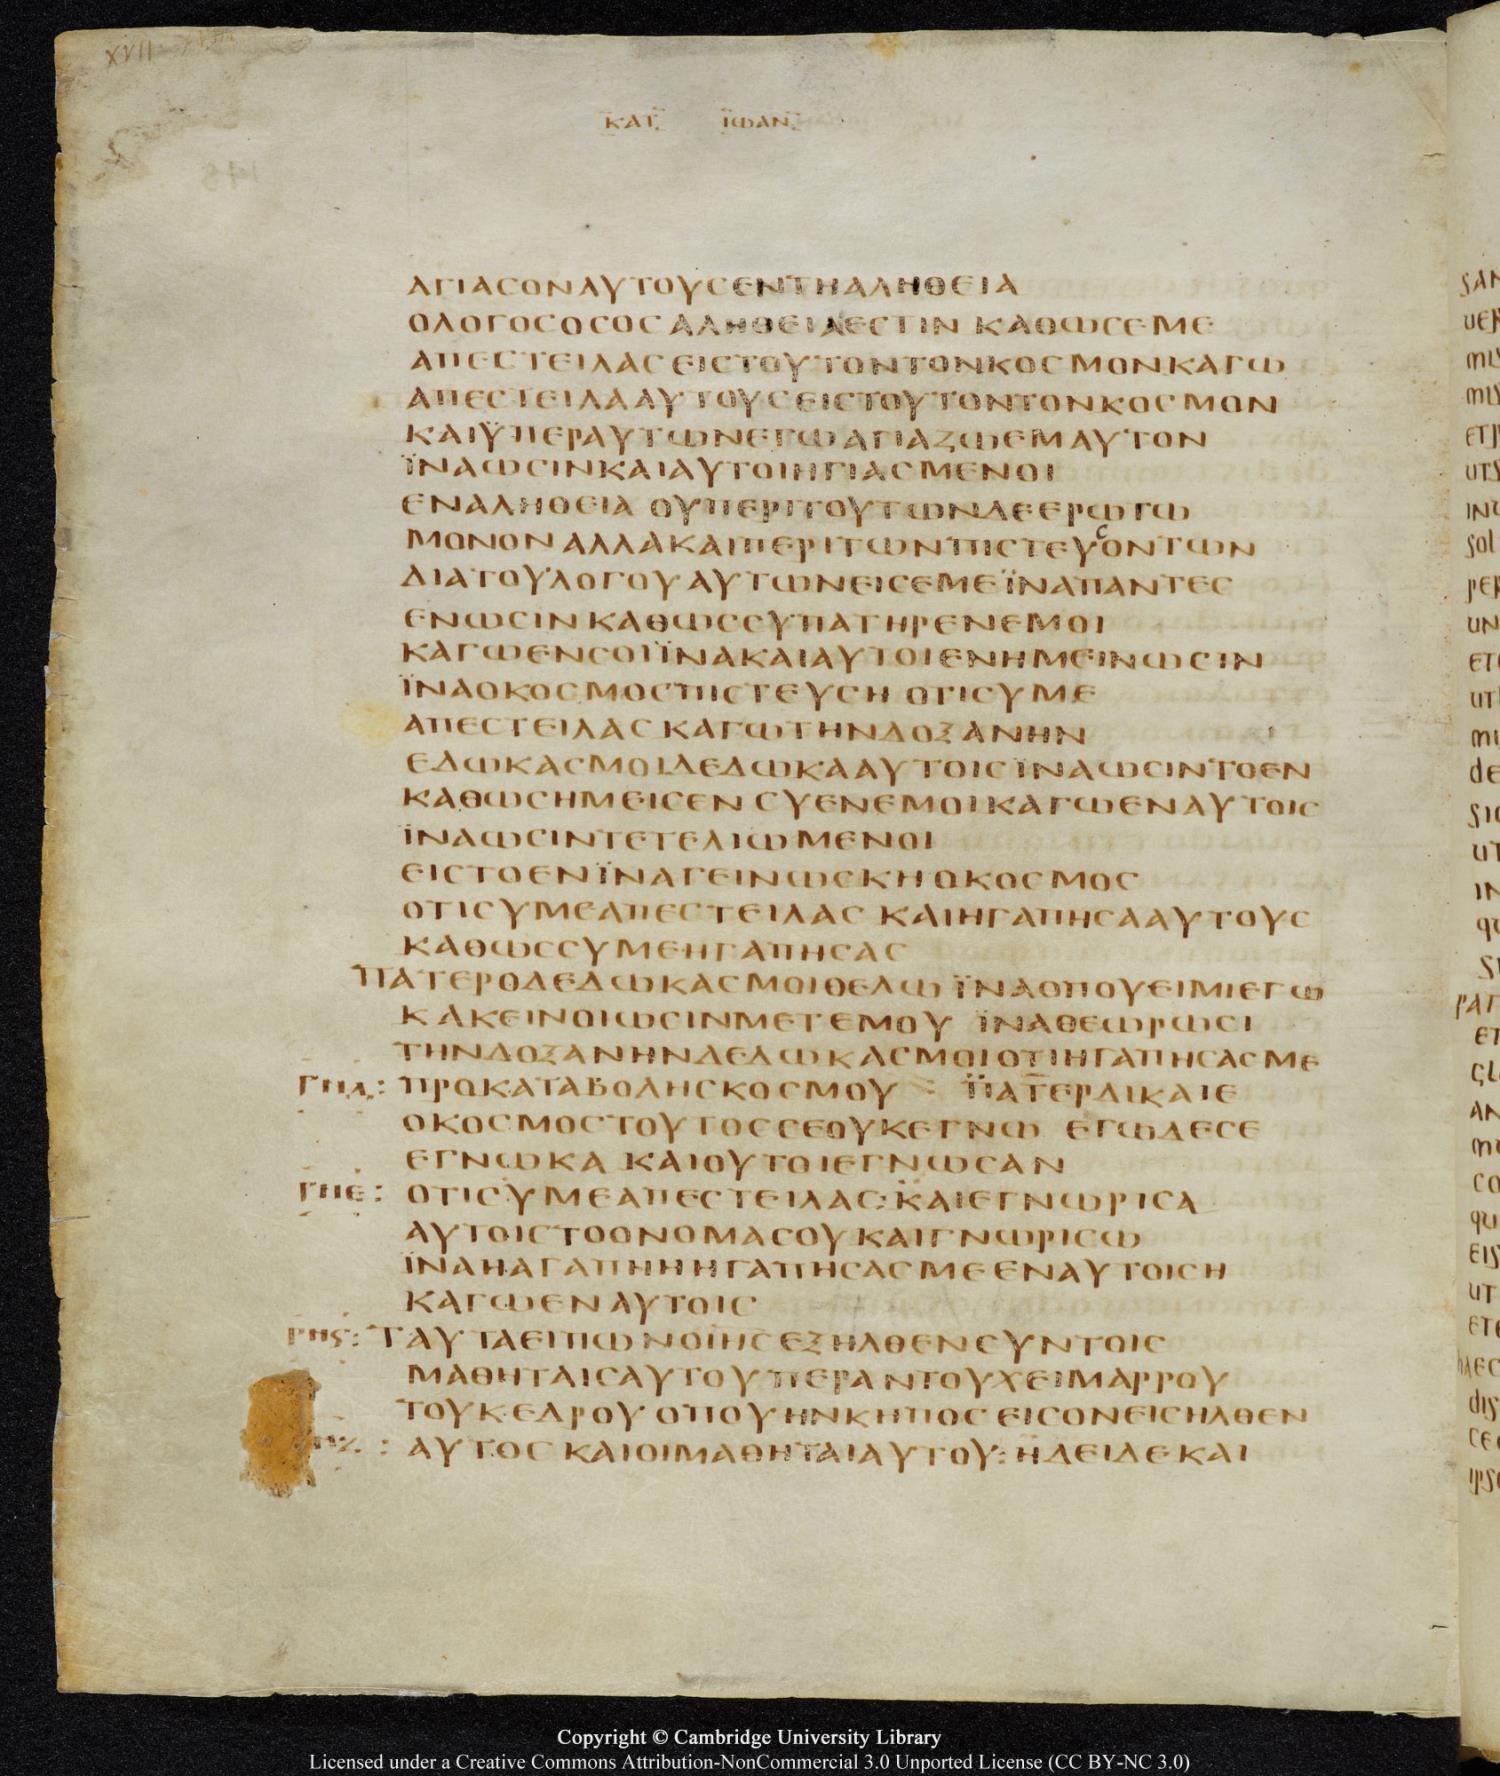 XVII
ΚΑΤ ΙΩΑΝ
ΑΓΙΑϹΟΝΑΥΤΟΥϹΕΝΤΗΑΛΗΘΕΙΑ
ΟΛΟΓΟϹΟϹΟϹ ΑΛΗΘΕΙΑΕϹΤΙΝ ΚΑΘΩϹΕΜΕ
ΑΠΕϹΤΕΙΛΑϹ ΕΙϹΤΟΥΤΟΝΤΟΝΚΟϹΜΟΝ.ΚΑΓΩ
ΑΠΕϹΤΕΙΛΑΑΥΤΟΥϹΕΙϹΤΟΥΤΟΝΤΟΝΚΟϹΜΟΝ
ΚΑΙΫΠΕΡΑΥΤΩΝΕΓΩΑΓΙΑΖΩΕΜΑΥΤΟΝ
ΪΝΑΩϹΙΝΚΑΙΑΥΤΟΙΗΓΙΑϹΜΕΝΟΙ
ΕΝΑΛΗΘΕΙΑ ΟΥΠΕΡΙΤΟΥΤΩΝΔΕΕΡΩΤΩ
ΜΟΝΟΝ ΑΛΛΑΚΑΙΠΕΡΙΤΩΝΠΙϹΤΕΥϹΟΝΤΩΝ
ΔΙΑΤΟΥΛΟΓΟΥΑΥΤΩΝΕΙϹΕΜΕΪΝΑΠΑΝΤΕϹ
ΕΝΩϹΙΝ ΚΑΘΩϹϹΥΠΑΤΗΡΕΝΕΜΟΙ
ΚΑΓΩΕΝϹΟΙΪΝΑΚΑΙΑΥΤΟΙΕΝΗΜΕΙΝΩϹΙΝ
ΪΝΑΟΚΟϹΜΟϹΠΙϹΤΕΥϹΗ ΟΤΙϹΥΜΕ
ΑΠΕϹΤΕΙΛΑϹ ΚΑΓΩΤΗΝΔΟΞΑΝΗΝ
ΕΔΩΚΑϹΜΟΙΔΕΔΩΚΑΑΥΤΟΙϹΪΝΑΩϹΙΝΤΟΕΝ
ΚΑΘΩϹΗΜΕΙϹΕΝ ϹΥΕΝΕΜΟΙΚΑΓΩΕΝΑΥΤΟΙϹ
ΪΝΑΩϹΙΝΤΕΤΕΛΙΩΜΕΝΟΙ
ΕΙϹΤΟΕΝΪΝΑΓΕΙΝΩϹΚΗΟΚΟϹΜΟϹ
ΟΤΙϹΥΜΕΑΠΕϹΤΕΙΛΑϹ ΚΑΙΗΓΑΠΗϹΑΑΥΤΟΥϹ
ΚΑΘΩϹϹΥΜΕΗΓΑΠΗϹΑϹ
ΠΑΤΕΡΟΔΕΔΩΚΑϹΜΟΙΘΕΛΩ ΪΝΑΟΠΟΥΕΙΜΙΕΓΩ
ΚΑΚΕΙΝΟΙΩϹΙΝΜΕΤΕΜΟΥ ΪΝΑΘΕΩΡΩϹΙ
ΤΗΝΔΟΞΑΝΗΝΔΕΔΩΚΑϹΜΟΙΟΤΙΗΓΑΠΗϹΑϹΜΕ
ΓΠΔ: ΠΡΟΚΑΤΑΒΟΛΗϹΚΟϹΜΟΥ ΠΑΤΕΡΔΙΚΑΙΕ
ΟΚΟϹΜΟϹΤΟΥΤΟϹϹΕΟΥΚΕΓΝΩ ΕΓΩΔΕϹΕ
ΕΓΝΩΚΑ ΚΑΙΟΥΤΟΙΕΓΝΩϹΑΝ
ΓΠΕ: ΟΤΙϹΥΜΕΑΠΕϹΤΕΙΛΑϹ:ΚΑΙΕΓΝΩΡΙϹΑ
ΑΥΤΟΙϹΤΟΟΝΟΜΑϹΟΥΚΑΙΓΝΩΡΙϹΩ
ΪΝΑΗΑΓΑΠΗΗΗΓΑΠΗϹΑϹΜΕΕΝΑΥΤΟΙϹΗ
ΚΑΓΩΕΝΑΥΤΟΙϹ
ΤΑΥΤΑΕΙΠΩΝΟΙΗϹΕΞΗΛΘΕΝϹΥΝΤΟΙϹ
ΜΑΘΗΤΑΙϹΑΥΤΟΥΠΕΡΑΝΤΟΥΧΕΙΜΑΡΡΟΥ
ΤΟΥΚΕΔΡΟΥ ΟΠΟΥΗΝΚΗΠΟϹ ΕΙϹΟΝΕΙϹΗΛΘΕΝ
ΑΥΤΟϹ ΚΑΙΟΙΜΑΘΗΤΑΙΑΥΤΟΥ:ΗΔΕΙΔΕΚΑΙ
Copyright © Cambridge University Library
Licensed under a Creative Commons Attribution-NonCommercial 3.0 Unported License (CC BY-NC 3.0)